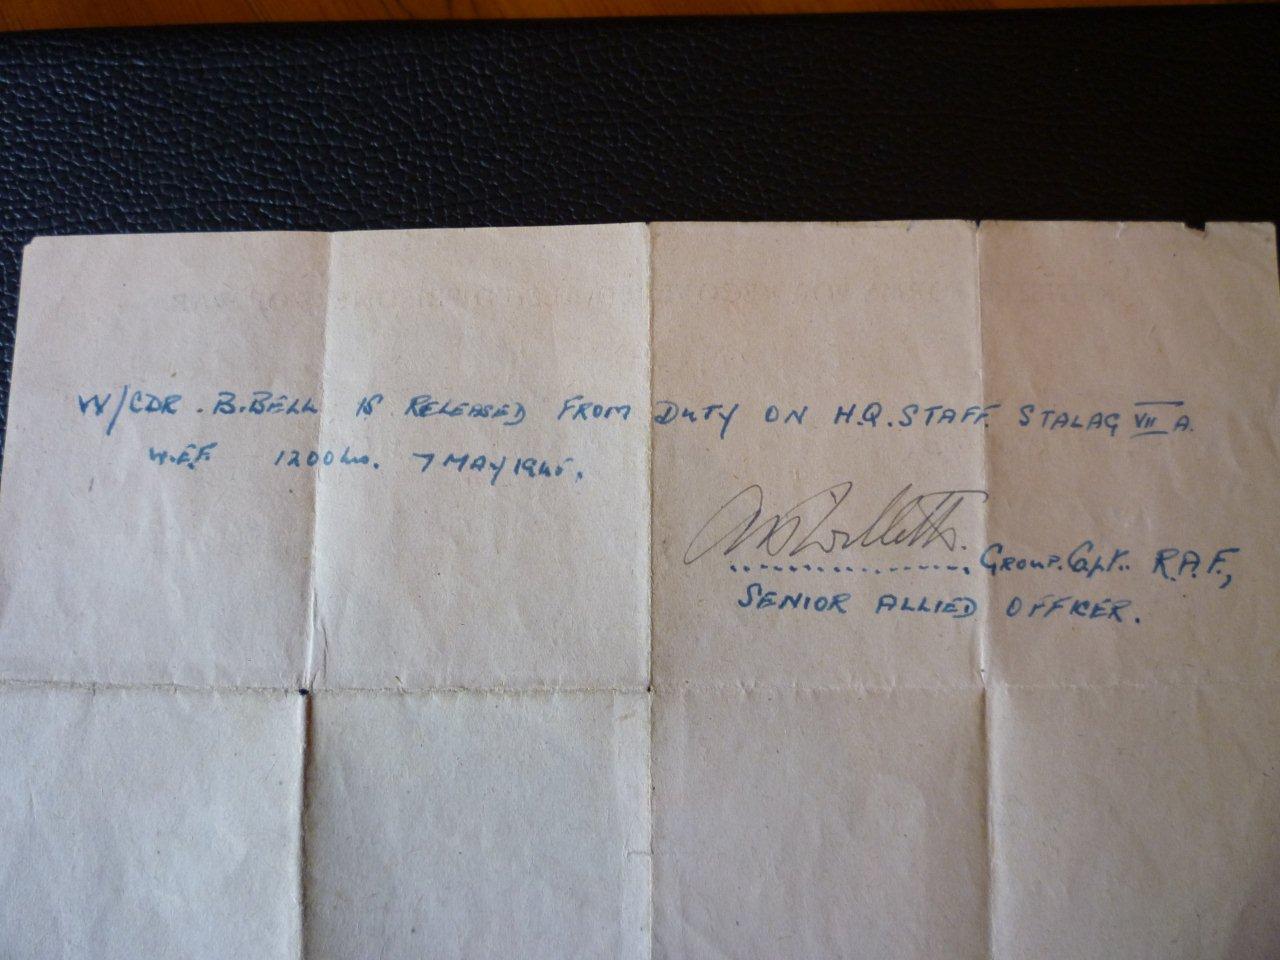 W/CDR. B. BELL IS RELEASED FROM DUTY ON H.Q. STAFF. STALAG VII A.
W.E.F. 1200 hrs. 7 MAY 1945.
Group. Capt. R.A.F.,
SENIOR ALLIED OFFICER.